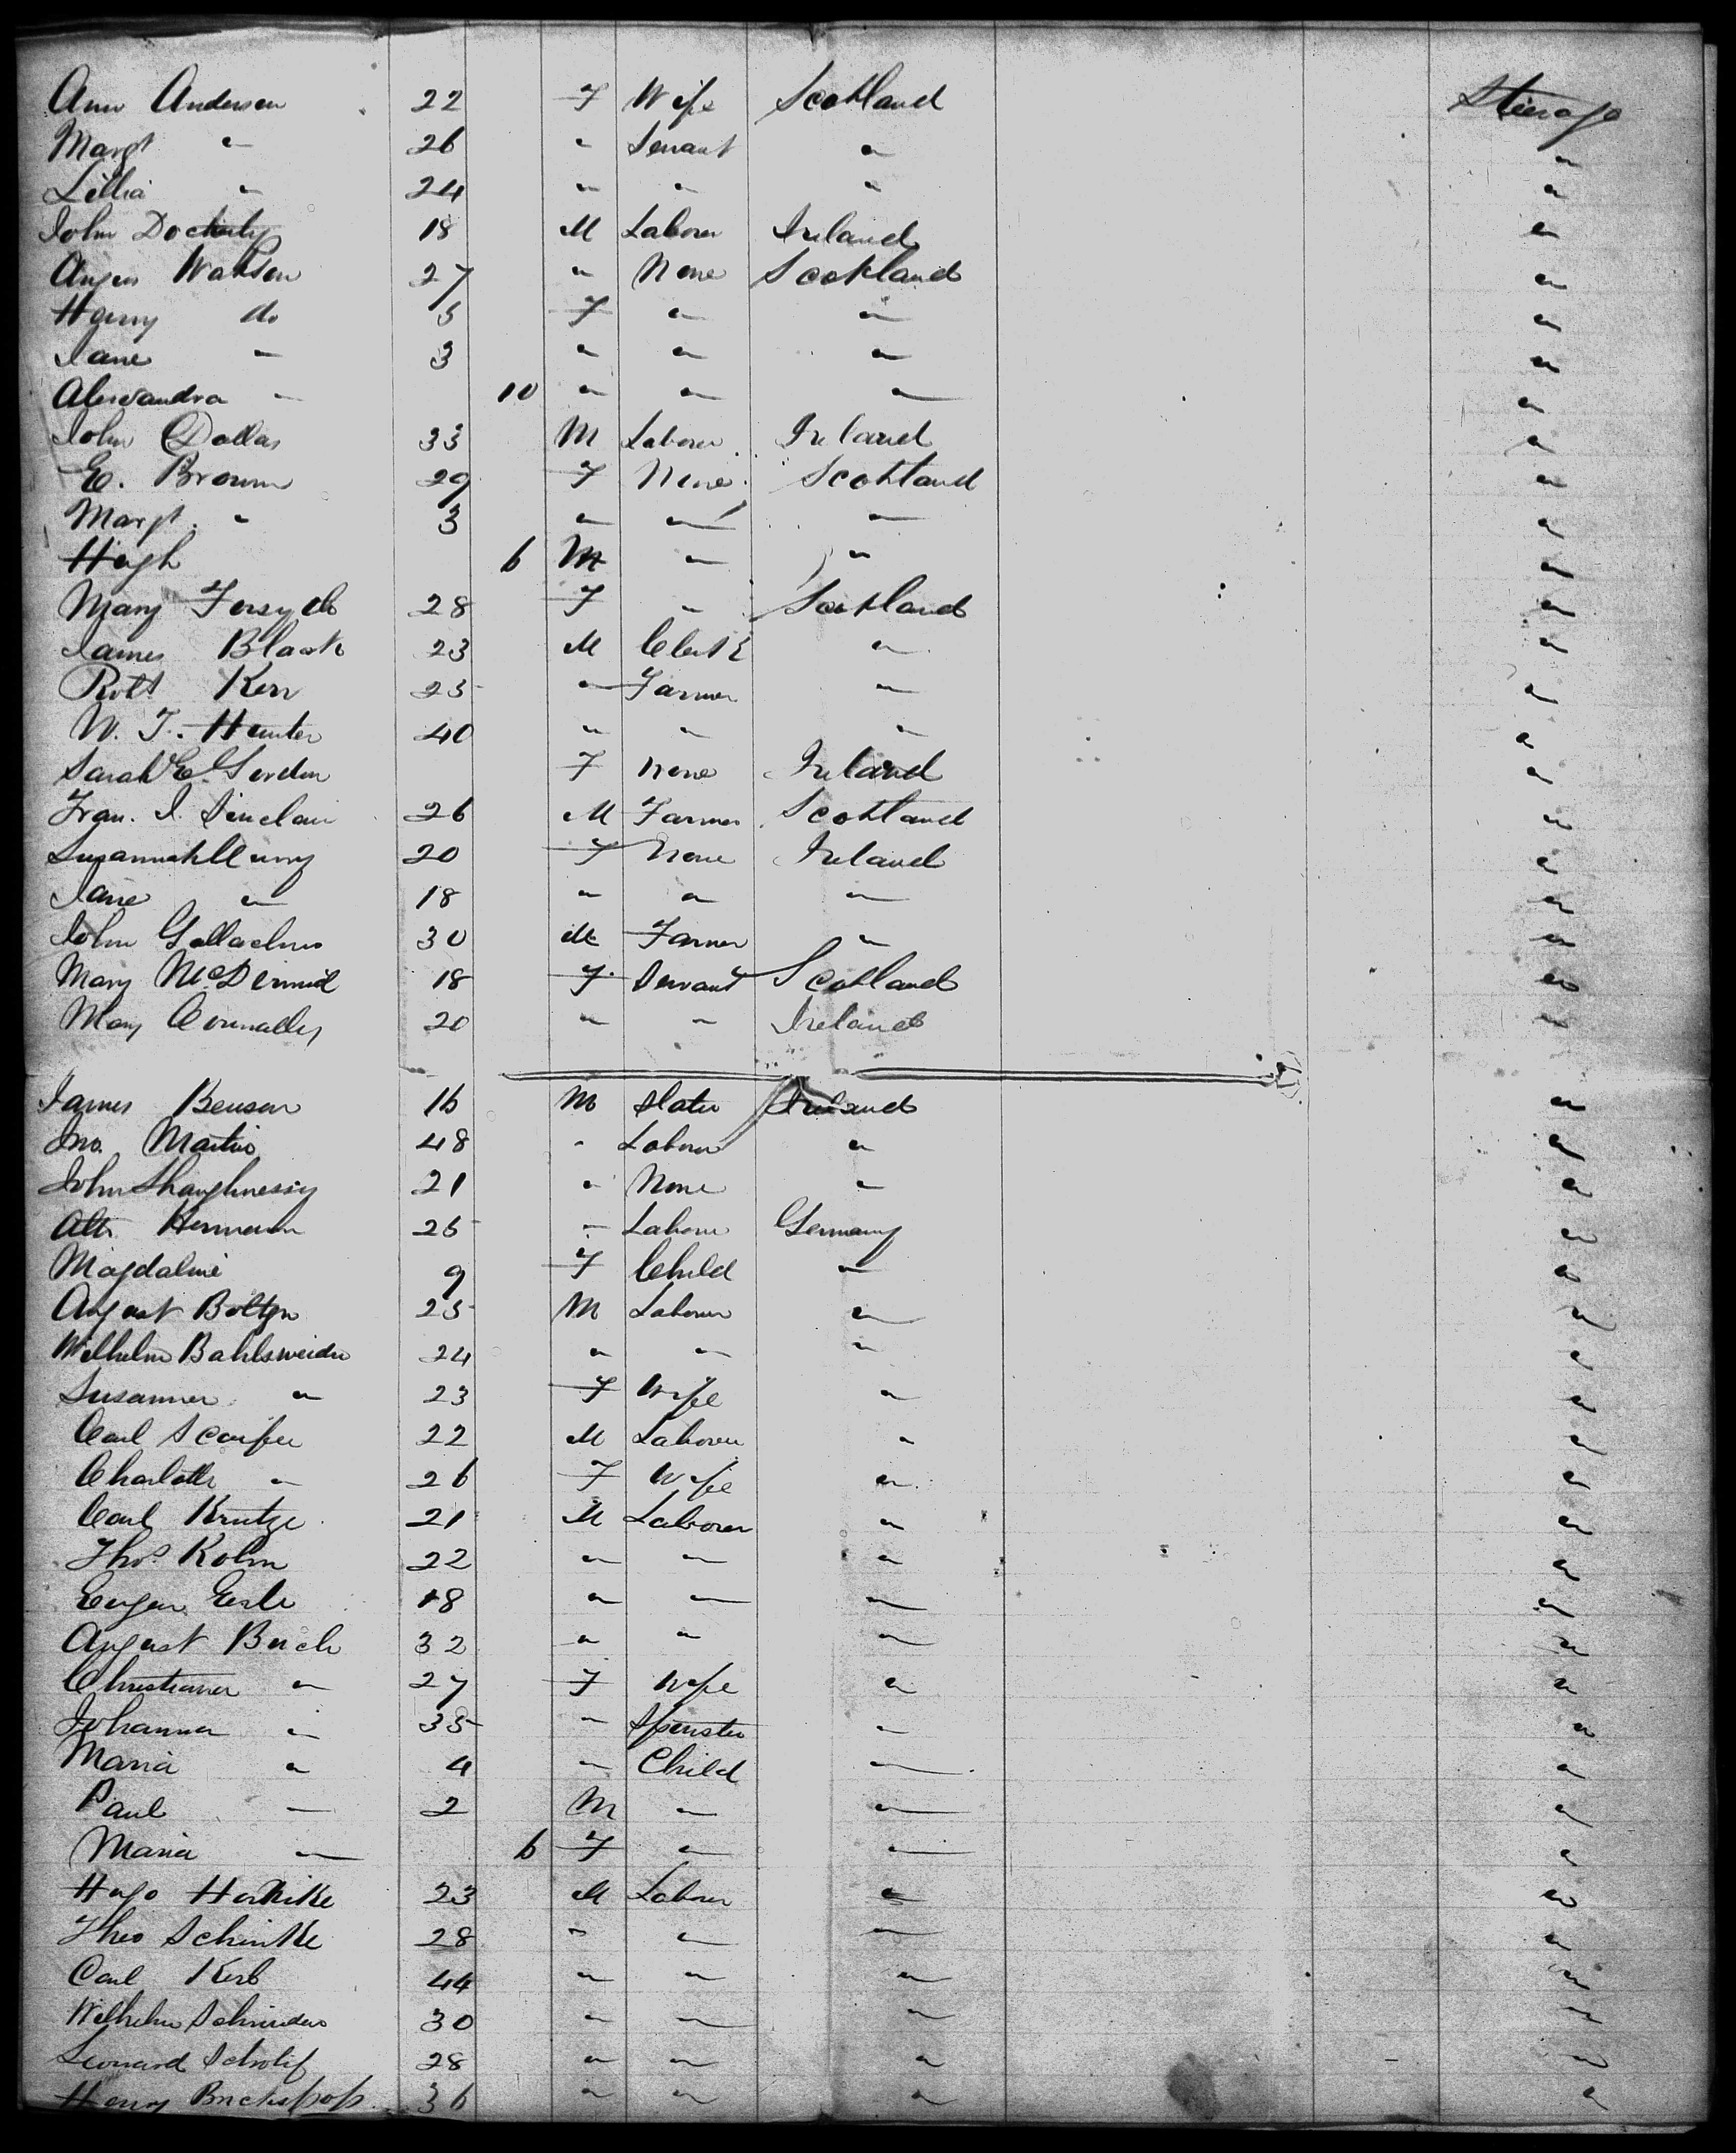 Ann Anderson 22 F Wife Scotland Steerage
Margt " 26 " Servant " "
Lillia " 24 " " " "
John Docherty 18 M Laborer Ireland "
Angus Watson 27 " None Scotland "
Harry do 5 F " " "
Jane " 3 " " " "
Alexandra " 10 " " " "
John Dallas 33 M Laborer Ireland "
E. Brown 29 F None Scotland "
Margt. " 3 " " " "
Hugh 6 M " " "
Mary Forsyth 28 F " Scotland "
James Black 23 M Clerk " "
Robt Kerr 25 " Farmer " "
W. T. Hunter 40 " " " "
Sarah E. Gordon F None Ireland "
Fran. J. Sinclair 26 M Farmer Scotland "
Susannah 20 F None Ireland "
Jane " 18 " " " "
John Gallacher 30 M Farmer " "
Mary McDermid 18 F Servant Scotland "
Mary Connalley 20 " " Ireland "
James Benson 16 M Slater Ireland "
Jno. Martin 48 " Laborer " "
John Shaughnessy 21 " None " "
Hermann 25 " Laborer Germany "
Magdaline 9 F Child " "
August 25 M Laborer " "
Wilhelm Bahlsweider 24 " " " "
Susanna " 23 F Wife " "
Carl 22 M Laborer " "
Charlotte " 26 F Wife " "
Carl Krutze 21 M Laborer " "
Thos Kohn 22 " " " "
Eugen 18 " " " "
August Buch 32 " " " "
Christiana " 27 F Wife " "
Johanna " 35 " Spinster " "
Maria " 4 " Child " "
Paul " 2 M " " "
Maria " 6 F " " "
Hugo 23 M Laborer " "
Theo Schinke 28 " " " "
Carl Kerb 44 " " " "
Wilhelm Schneider 30 " " " "
Leonard 28 " " " "
Henry 36 " " " "